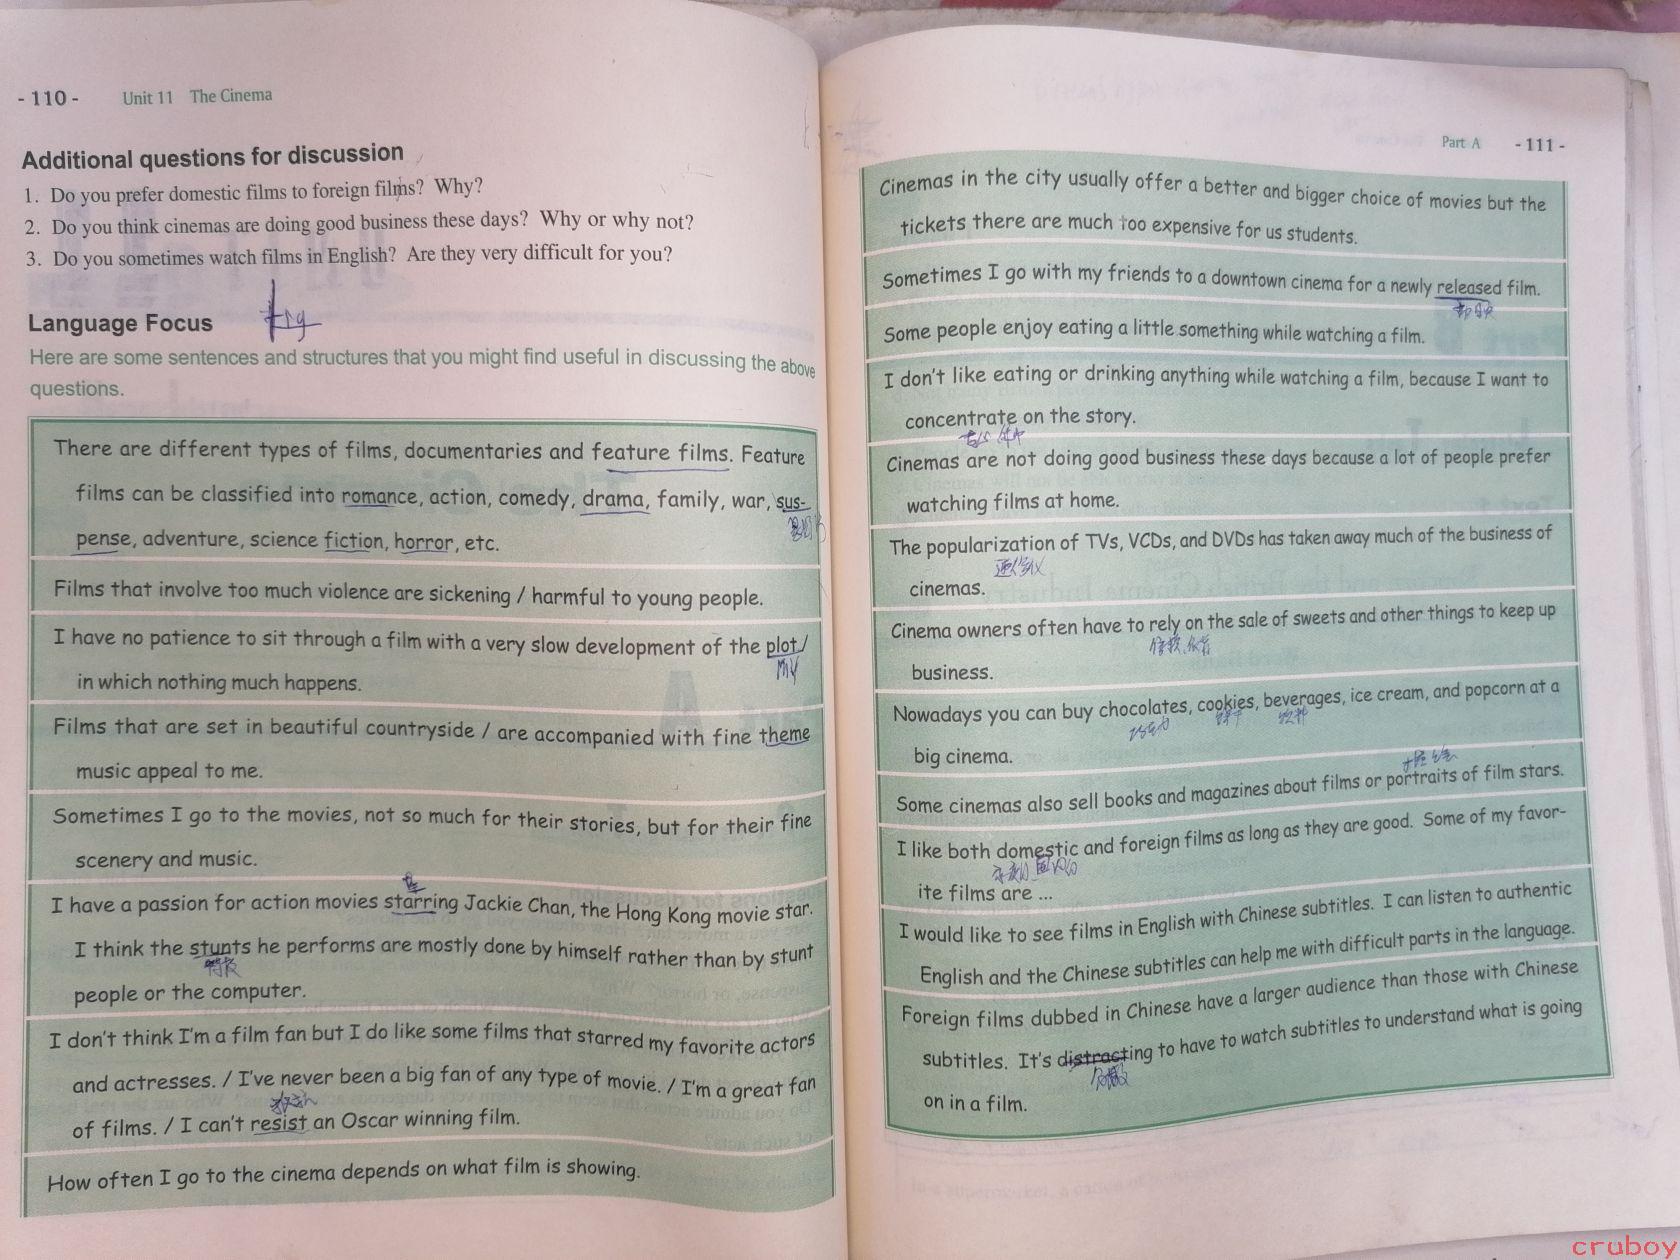 - 110 - Unit 11 The Cinema
Additional questions for discussion
1. Do you prefer domestic films to foreign films? Why?
2. Do you think cinemas are doing good business these days? Why or why not?
3. Do you sometimes watch films in English? Are they very difficult for you?
Language Focus
Here are some sentences and structures that you might find useful in discussing the above
questions.
There are different types of films, documentaries and feature films. Feature
films can be classified into romance, action, comedy, drama, family, war, sus-
pense, adventure, science fiction, horror, etc.
Films that involve too much violence are sickening / harmful to young people.
I have no patience to sit through a film with a very slow development of the plot /
in which nothing much happens.
Films that are set in beautiful countryside / are accompanied with fine theme
music appeal to me.
Sometimes I go to the movies, not so much for their stories, but for their fine
scenery and music.
I have a passion for action movies starring Jackie Chan, the Hong Kong movie star.
I think the stunts he performs are mostly done by himself rather than by stunt
特技
people or the computer.
I don't think I'm a film fan but I do like some films that starred my favorite actors
and actresses. / I've never been a big fan of any type of movie. / I'm a great fan
of films. / I can't resist an Oscar winning film.
How often I go to the cinema depends on what film is showing.
Part A - 111 -
Cinemas in the city usually offer a better and bigger choice of movies but the
tickets there are much too expensive for us students.
Sometimes I go with my friends to a downtown cinema for a newly released film.
Some people enjoy eating a little something while watching a film.
I don't like eating or drinking anything while watching a film, because I want to
concentrate on the story.
Cinemas are not doing good business these days because a lot of people prefer
watching films at home.
The popularization of TVs, VCDs, and DVDs has taken away much of the business of
cinemas.
Cinema owners often have to rely on the sale of sweets and other things to keep up
business.
Nowadays you can buy chocolates, cookies, beverages, ice cream, and popcorn at a
巧克力 饼干 饮料
big cinema.
描绘
Some cinemas also sell books and magazines about films or portraits of film stars.
I like both domestic and foreign films as long as they are good. Some of my favor-
ite films are ...
I would like to see films in English with Chinese subtitles. I can listen to authentic
English and the Chinese subtitles can help me with difficult parts in the language.
Foreign films dubbed in Chinese have a larger audience than those with Chinese
subtitles. It's distracting to have to watch subtitles to understand what is going
分散
on in a film.
cruboy